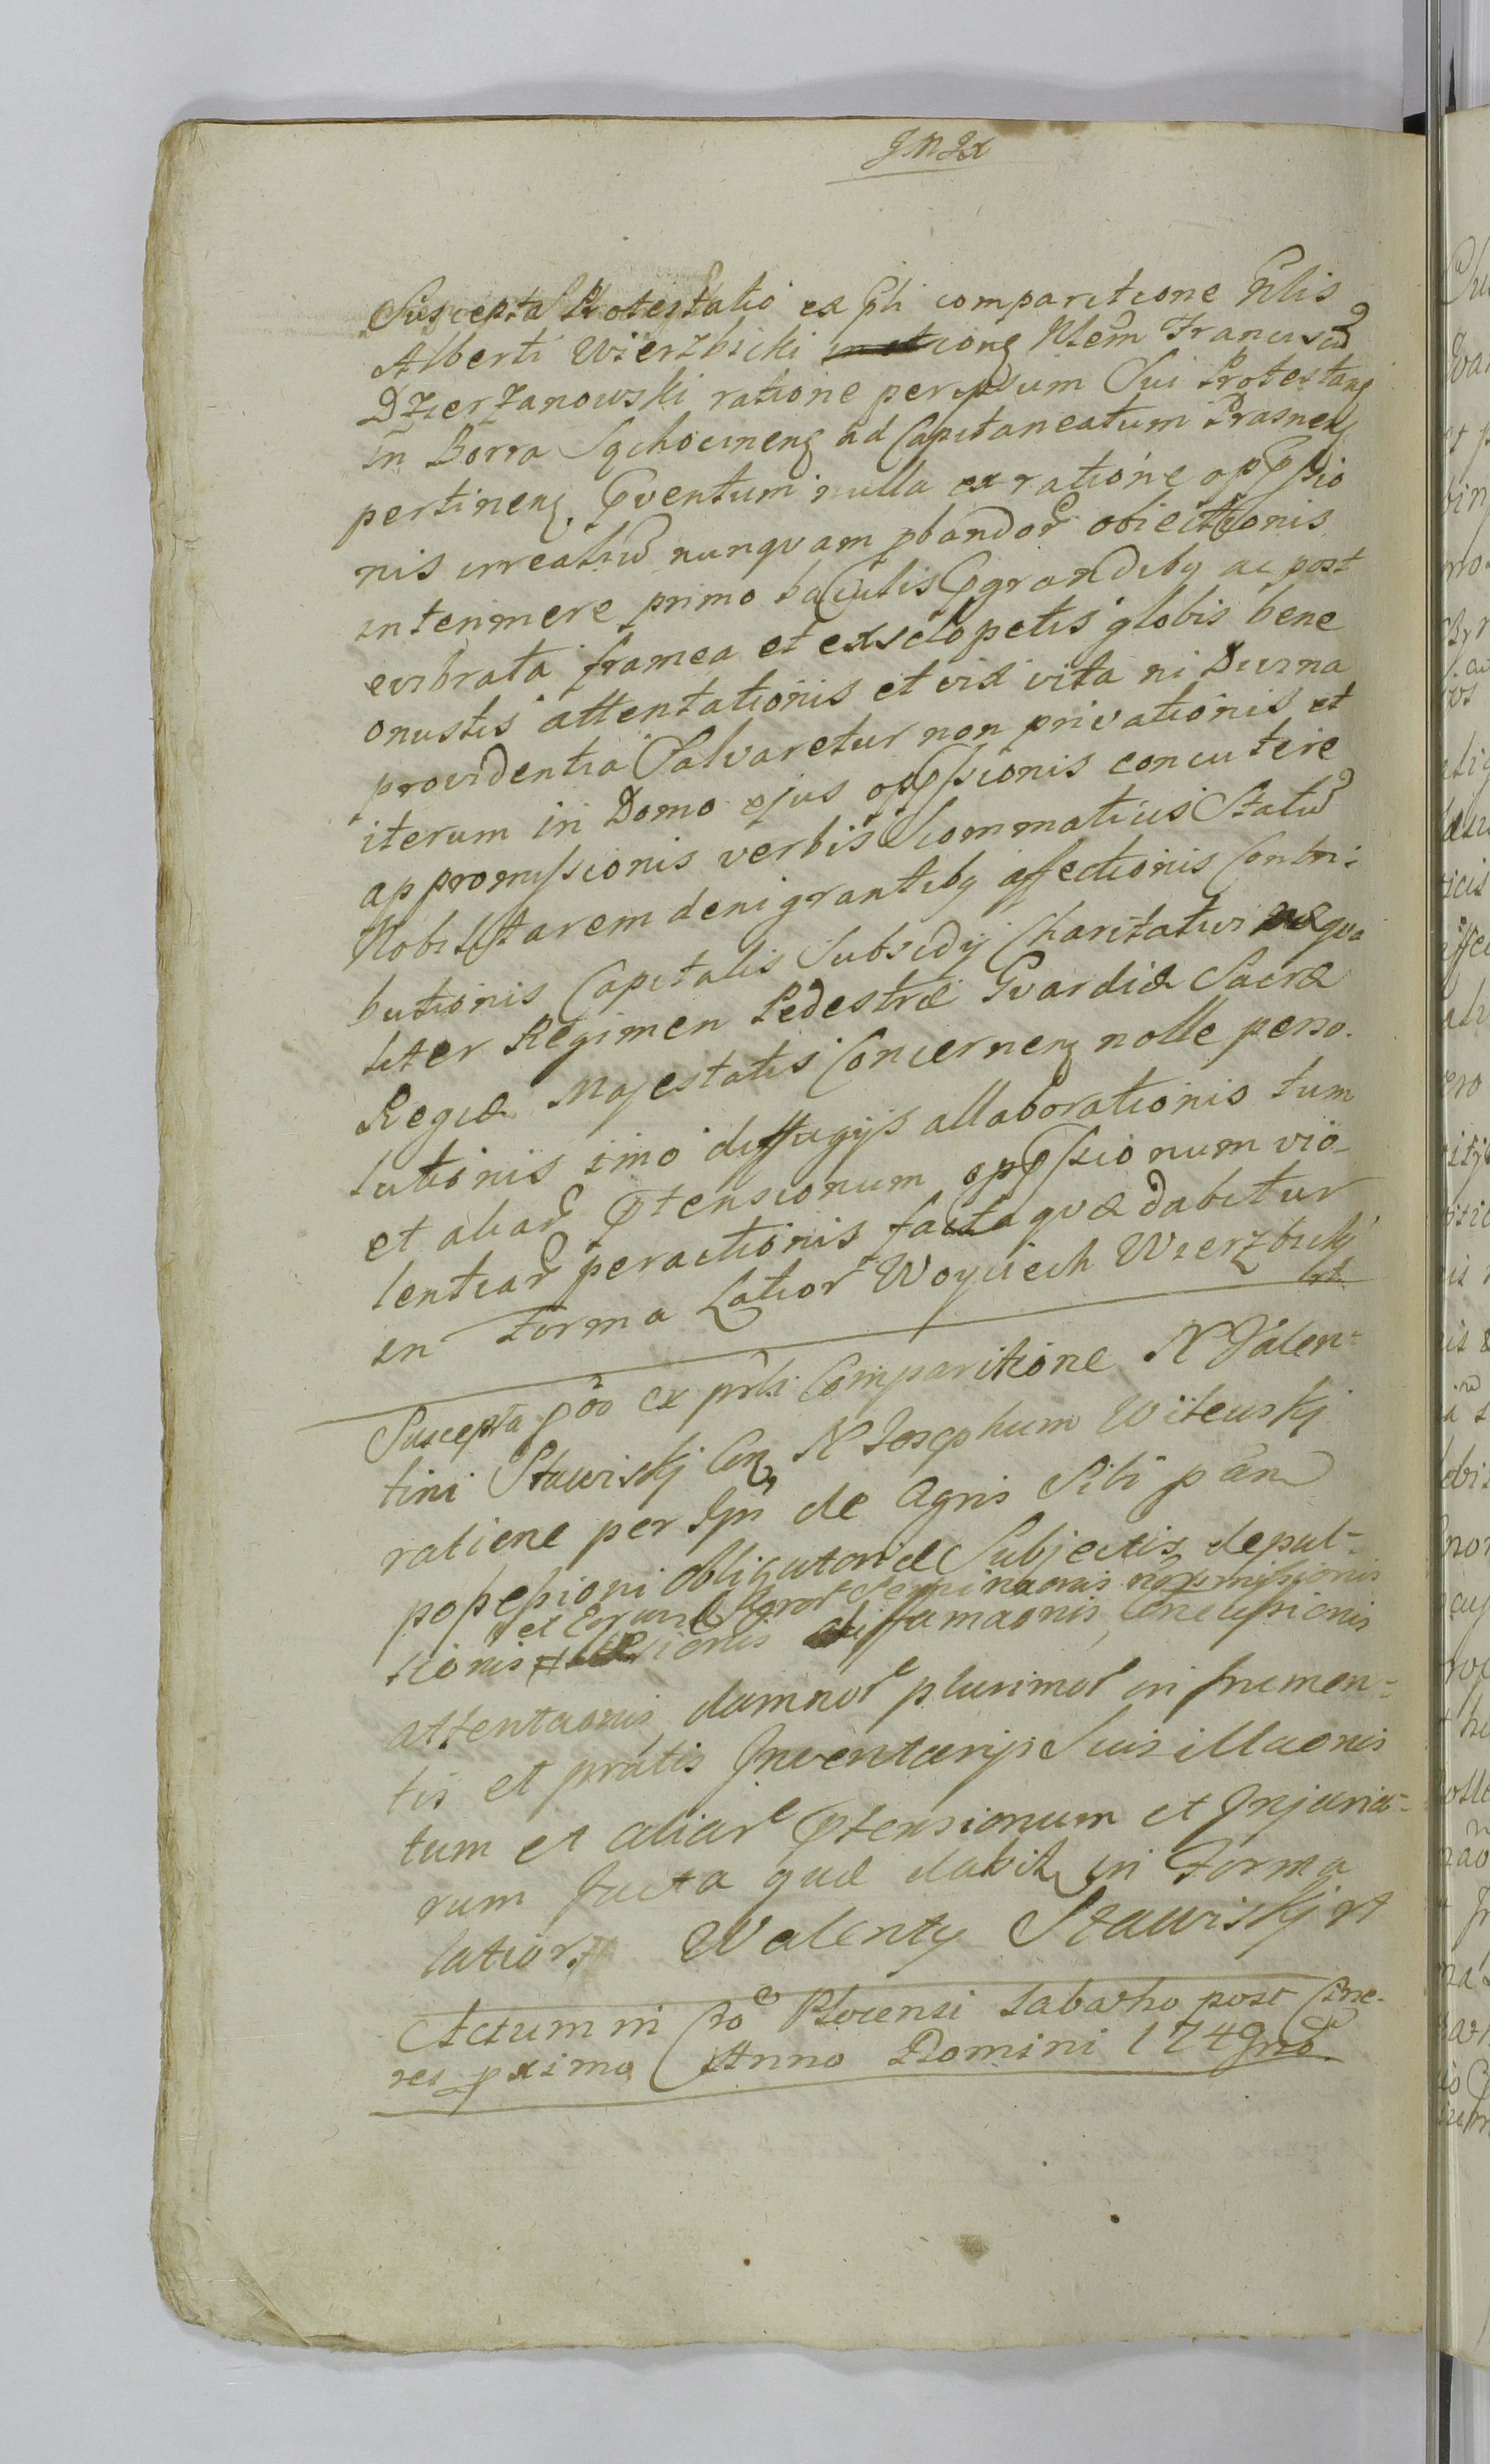 Suscepta Protestatio ex pti comparitione Nblis
Alberti Wierzbicki Nlem Franciscu
Dzierzanowski ratione per ipsum Sui Protestans
in Borra ad Capitaneatum Prasnens
pertinens Eventum nulla ex ratione oppressio
nis irreatiu nunquam pbandor obiectionis
intenimere primo baculis grandibq ac post
evibrata framea et exsclopetis globis bene
onustis attentationis et vix vita ni Divina
providentia Salvaretur non privationis et
iterum in Domo ejus oppressionis concutere
appromissionis verbis Scommaticis Statu
Nobilitarem denigrantibq affectionis Contri:
butionis Capitalis Subsidij Charitativi æqua
liter Regimen Pedestræ Gvardiæ Sacræ
Regiæ Majestatis Concernens nolle perso.
lutionis imo diffugijs allaborationis tum
et aliar prætensionum oppressionum vio-
lentiar peractionis facta quæ dabitur
in Forma Latior Woyciech Wierzbickj
Suscepta poo ex prti Comparitione N Valen-
tini Stawiskj Con N Josephum Witeuskj
ratione per Ipm de Agris Sibi pan
possessioni obligatoriæ Subjectis depul-
et
sionis diffamaonis, Concussionis
attentaonis damnor plurimor in frumen-
tis et pratis Inventarijs Suis illaonis
tum et aliar prætensionum et Injuria-
rum facta quæ dabit in Forma
latiori Walenty Stawiskj rt
Actum in Cro Plocensi Sabatho post Cine-
res pximo Anno Domini 1749no